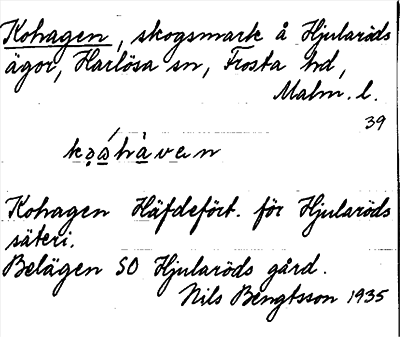 Kohagen, skogsmark å Hjularöds
ägor, Harlösa sn, Frosta hd,
Malm. l.
39
ko̥a̲´hàven
Kohagen Häfdeført. för Hjularöds
säteri.
Belägen SO Hjularöds gård.
Nils Bengtsson 1935